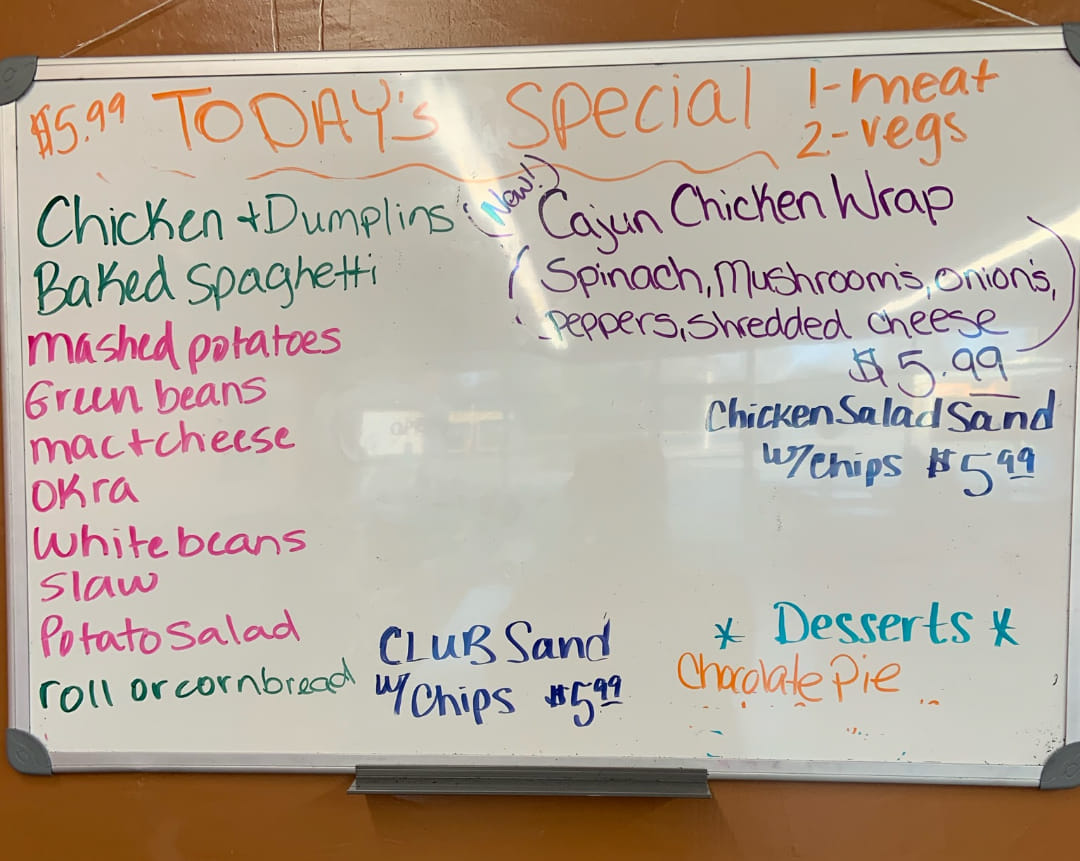 $5.99 TODAY's Special 1-meat
2-vegs
Chicken + Dumplins
Baked Spaghetti
mashed potatoes
Green beans
mac + cheese
OKra
White beans
slaw
Potato Salad
roll or cornbread
(New!) Cajun Chicken Wrap
(Spinach, Mushroom's, onion's,
peppers, shredded cheese)
$5.99
Chicken Salad Sand
w/chips $5.99
CLUB Sand
w/Chips $5.99
* Desserts *
Chocolate Pie